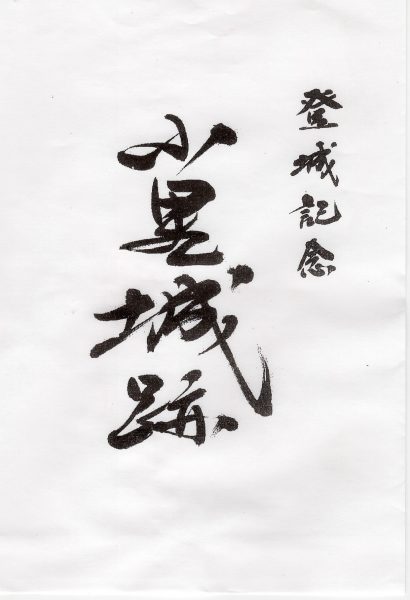 登城記念
小里城跡